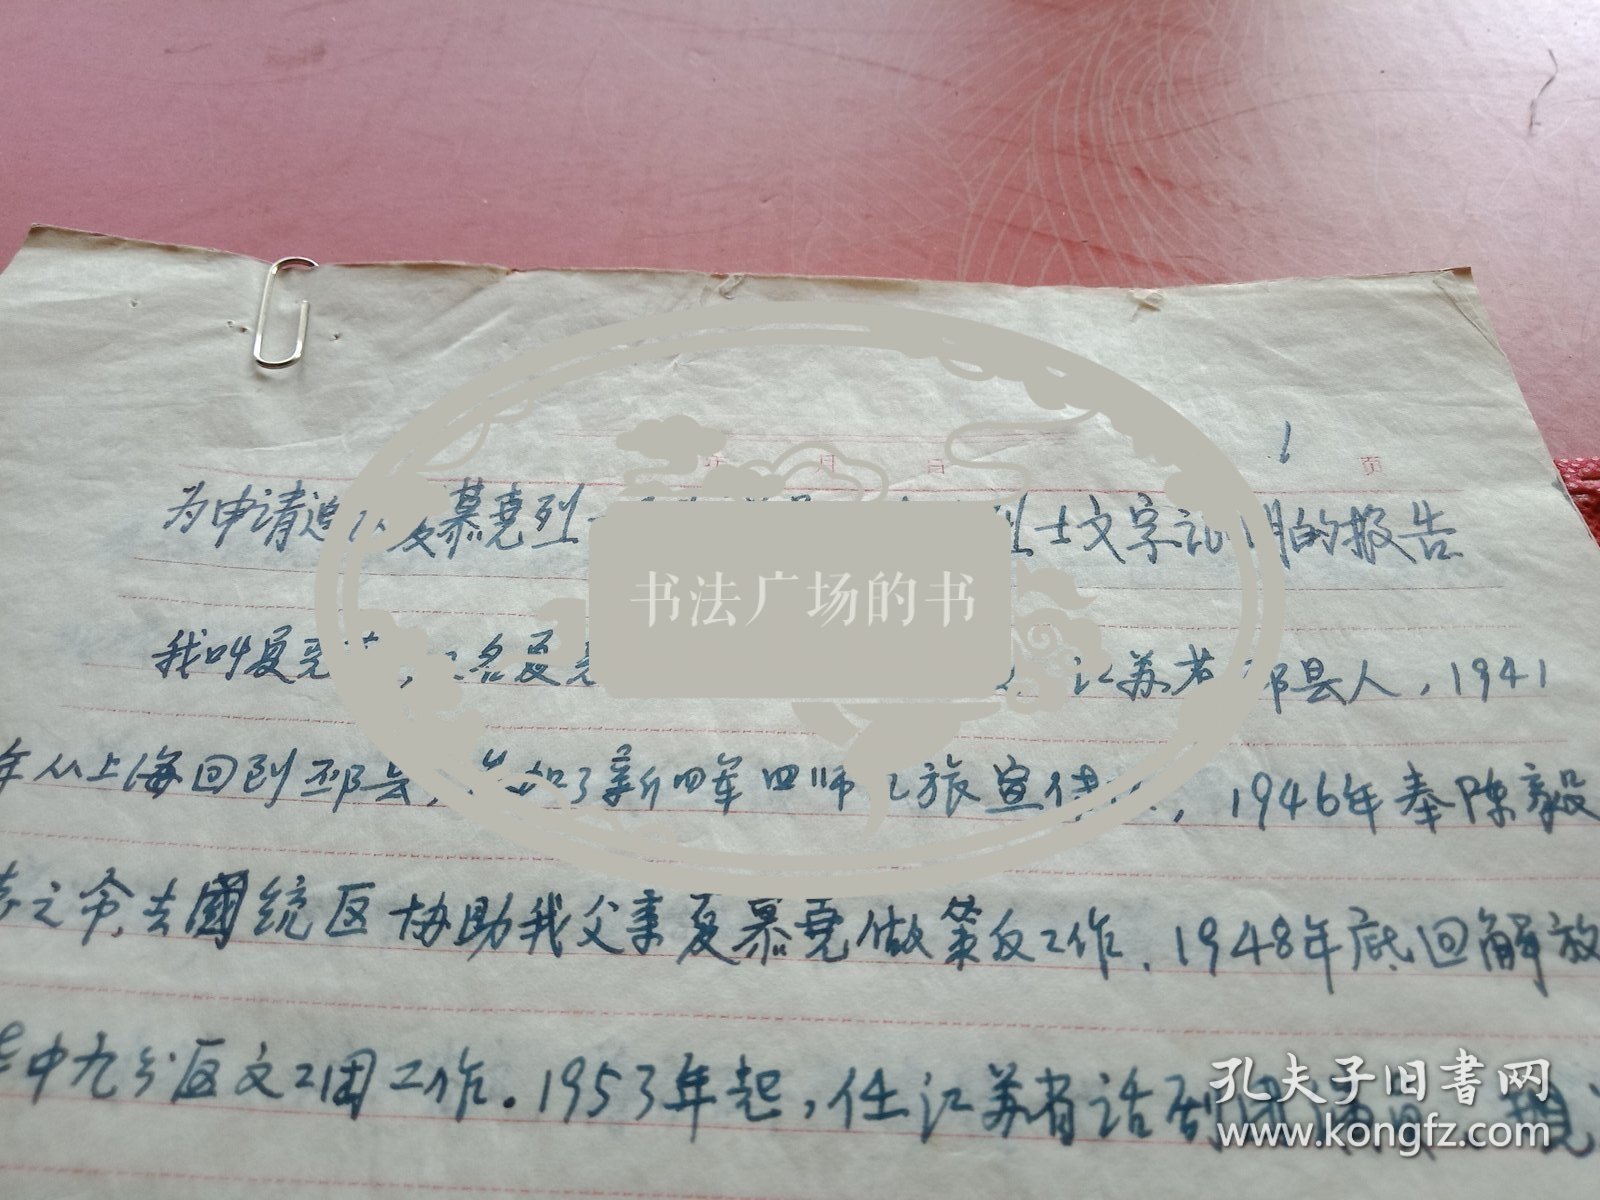 年 月 日 1 页
为申请追 慕尧烈 烈士文字 明的报告
我叫夏 名夏 江苏省邳县人，1941
年从上海回到邳县， 参加了新四军四师九旅宣传 ，1946年奉陈毅
之命，去國统区协助我父亲夏慕尧做策反工作，1948年底回解放
华中九分区文工团工作。1953年起，任江苏省话剧团演员，现
书法广场的书
孔夫子旧書网
www.kongfz.com